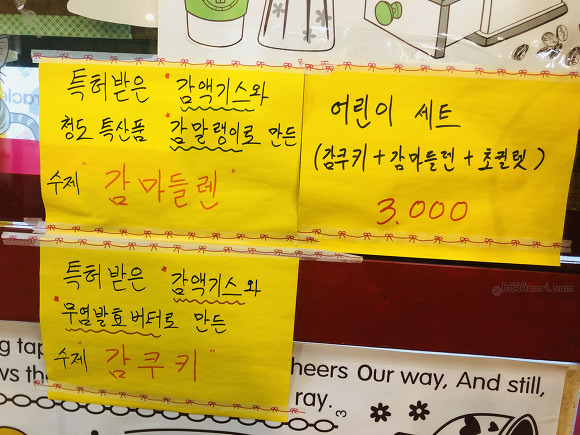 특허받은 "감액기스와
청도 특산품 "감말랭이로 만든
수제 "감마들렌"
어린이 세트
(감쿠키+감마들렌+초컬렛)
3.000
특허받은 "감액기스와
"무염발효버터로 만든
수제 "감쿠키"
heers Our way, And still,
ray.